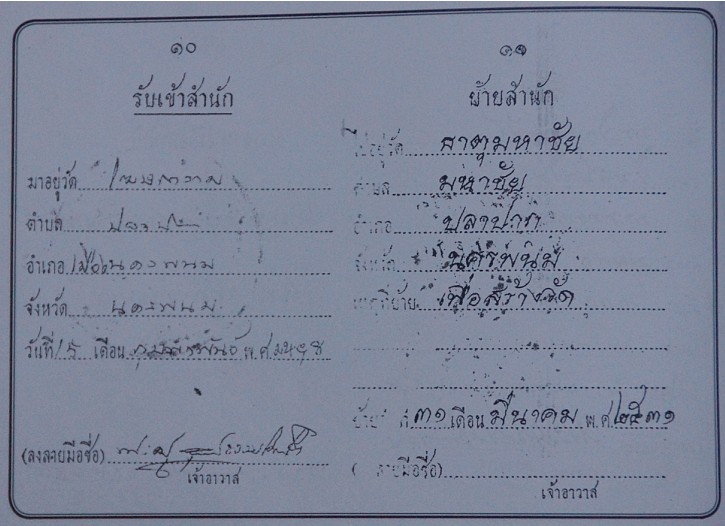 ๑๐
รับเข้าสำนัก
มาอยู่วัด
ตำบล
อำเภอ เมืองนครพนม
จังหวัด นครพนม
วันที่ ๑๕ เดือน กุมภาพันธ์ พ.ศ.
(ลงลายมือชื่อ)
เจ้าอาวาส
๑๑
ย้ายสำนัก
ไปอยู่วัด ธาตุมหาชัย
ตำบล มหาชัย
อำเภอ ปลาปาก
จังหวัด นครพนม
เหตุที่ย้าย เพื่อสร้างวัด
๓๑ เดือน มีนาคม พ.ศ. ๒๕๓๑
ลายมือชื่อ)
เจ้าอาวาส